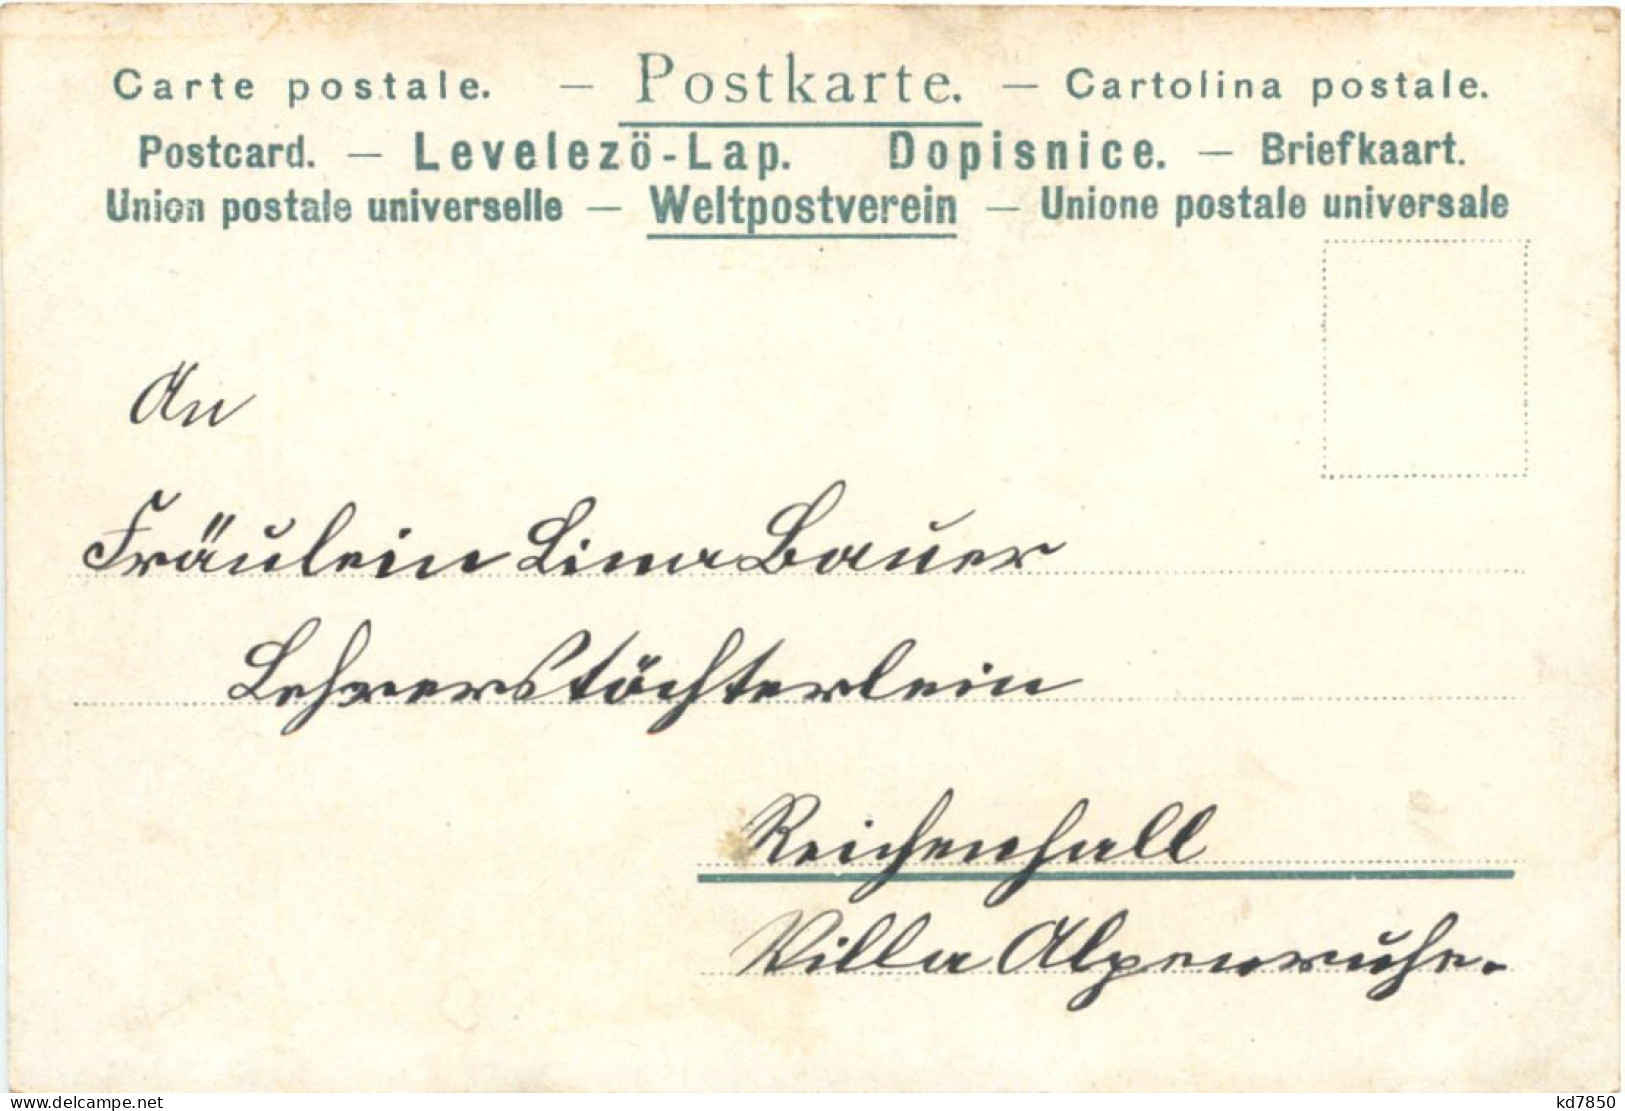 Carte postale. — Postkarte. — Cartolina postale.
Postcard. — Levelezö-Lap. Dopisnice. — Briefkaart.
Union postale universelle — Weltpostverein — Unione postale universale
An
Fräulein Lina Bauer
Lehrerstöchterlein
Reichenhall
Villa Alpenruhe.
www.delcampe.net
kd7850